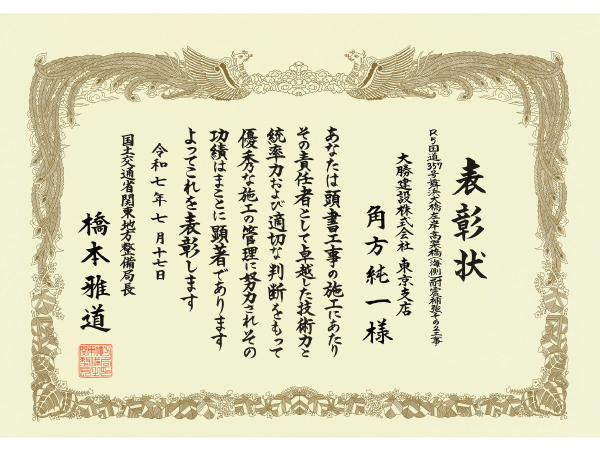 表彰状
R5国道357号舞浜大橋左岸高架橋(海側)耐震補強その2工事
大勝建設株式会社 東京支店
角方純一様
あなたは頭書工事の施工にあたり
その責任者として卓越した技術力と
統率力および適切な判断をもって
優秀な施工の管理に努力されその
功績はまことに顕著であります
よってこれを表彰します
令和七年七月十七日
国土交通省関東地方整備局長
橋本雅道